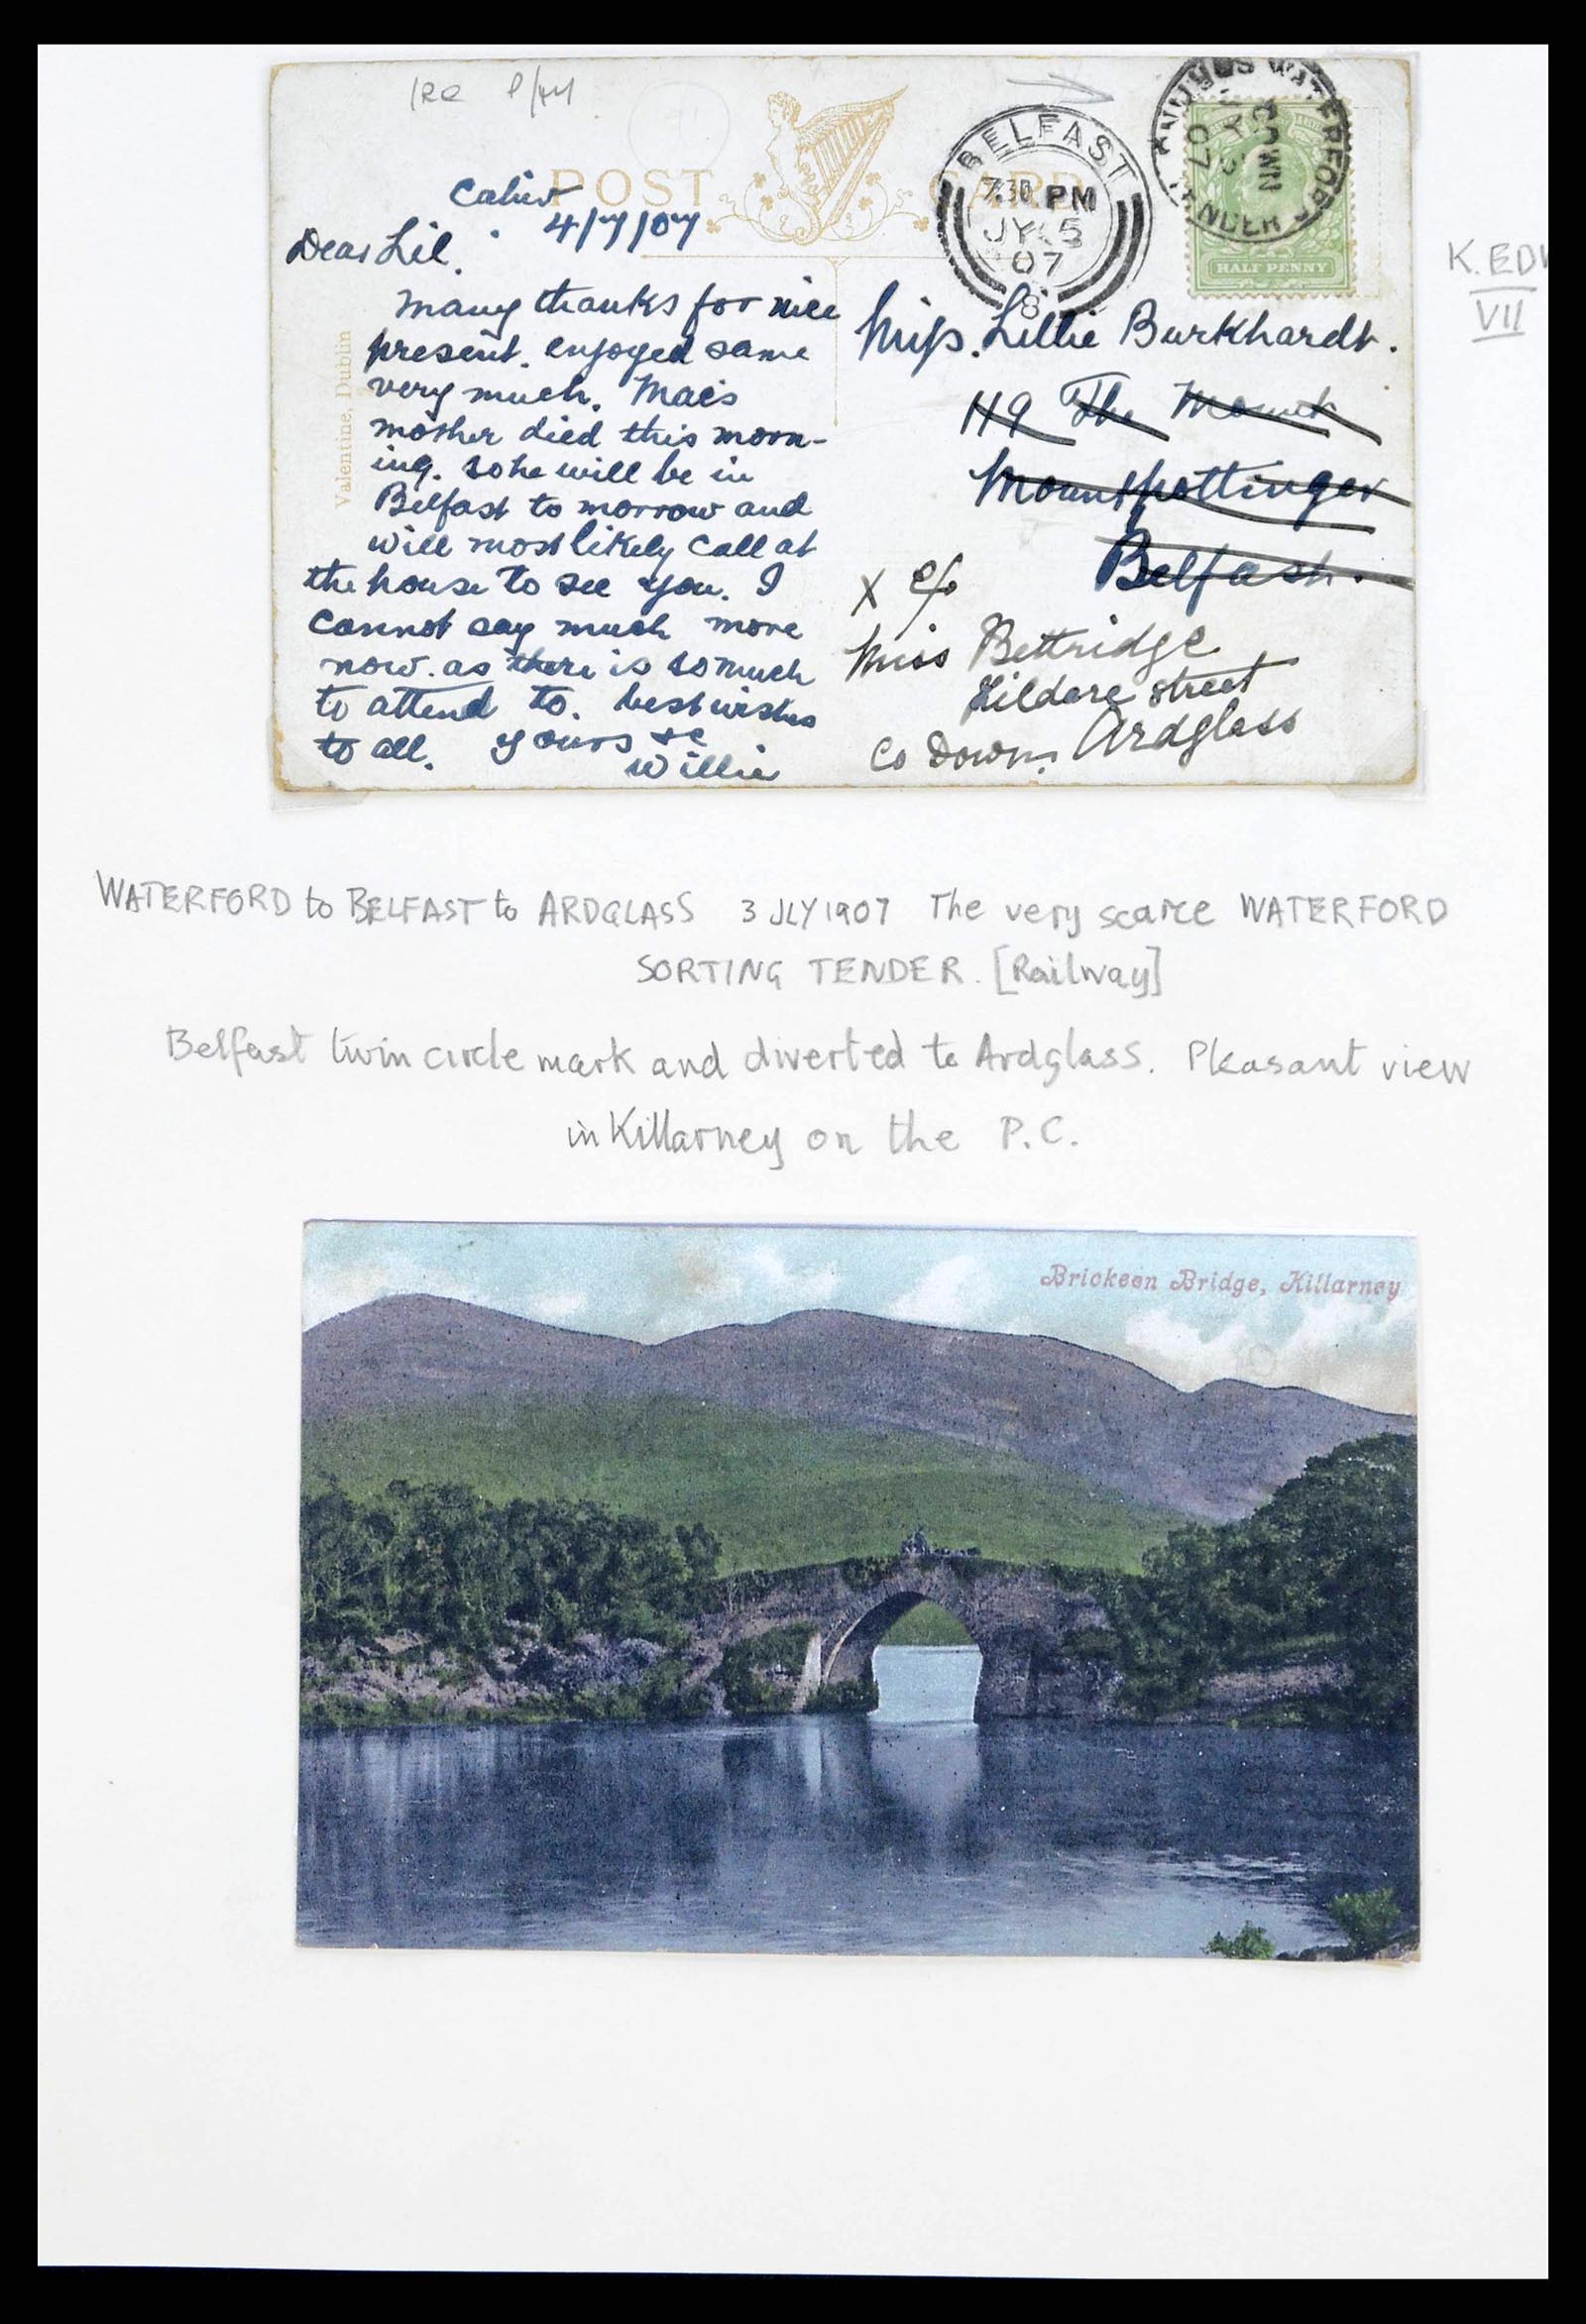 POST CARD
Cahir
4/7/07
Dear Lil.
Many thanks for nice
present. enjoyed same
very much. Mac's
mother died this morn-
ing. so he will be in
Belfast to morrow and
will most likely call at
the house to see you. I
cannot say much more
now. as there is so much
to attend to. best wishes
to all. yours &c
Willie
Valentine, Dublin
BELFAST
7.30 PM
JY 5
07
8
WATERFORD
DOWN
JY 3
07
TENDER
HALF PENNY
K.EDW
VII
Miss. Lillie Burkhardt.
119 The Mount
Mountpottinger
Belfast.
X c/o
Miss Bettridge
Kildare street
Ardglass
Co Down.
WATERFORD to BELFAST to ARDGLASS 3 JLY 1907 The very scarce WATERFORD
SORTING TENDER. [Railway]
Belfast twin circle mark and diverted to Ardglass. Pleasant view
in Killarney on the P.C.
Brickeen Bridge, Killarney